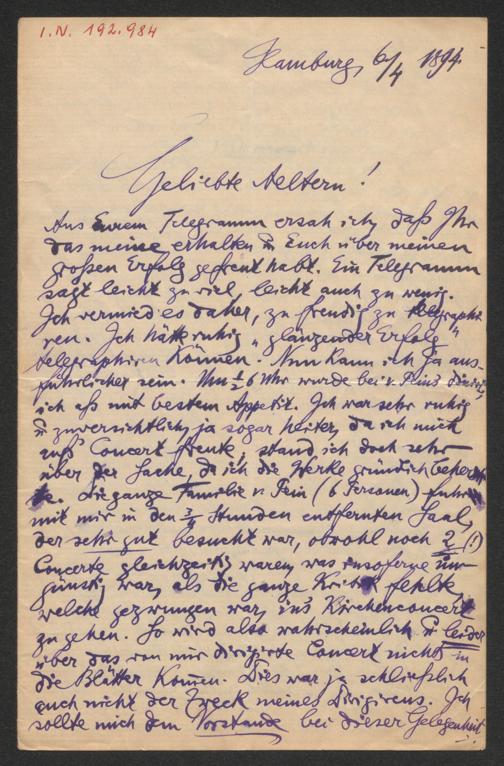 I.N. 192.984
Hamburg, 6/4 1894.
Geliebte Aeltern!
Aus Eurem Telegramm ersah ich, daß Ihr
das meine erhalten u Euch über meinen
großen Erfolg gefreut habt. Ein Telegramm
sagt leicht zu viel, leicht auch zu wenig.
Ich vermied es daher, zu freudig zu telegraphi
ren. Ich hätte ruhig „glänzender Erfolg"
telegraphiren können. Nun kann ich ja aus-
führlicher sein. Um ½ 6 Uhr wurde bei v. Fein dinirt,
ich aß mit bestem Appetit. Ich war sehr ruhig
u zuversichtlich, ja sogar heiter, da ich mich
aufs Concert freute, stand ich doch sehr
über der Sache, da ich die Werke gründlich beherrsch
te. Die ganze Familie v. Fein (6 Personen) fuhr
mit mir in den ¾ Stunden entfernten Saal,
der sehr gut besucht war, obwohl noch 2 (!)
Concerte gleichzeitig waren, was insoferne un-
günstig war, als die ganze Kritik fehlte,
welche gezwungen war, ins Kirchenconcert
zu gehen. So wird also wahrscheinlich u leider
über das von mir dirigirte Concert nichts in
die Blätter kommen. Dies war ja schließlich
auch nicht der Zweck meines Dirigirens. Ich
sollte mich dem Vorstande bei dieser Gelegenheit